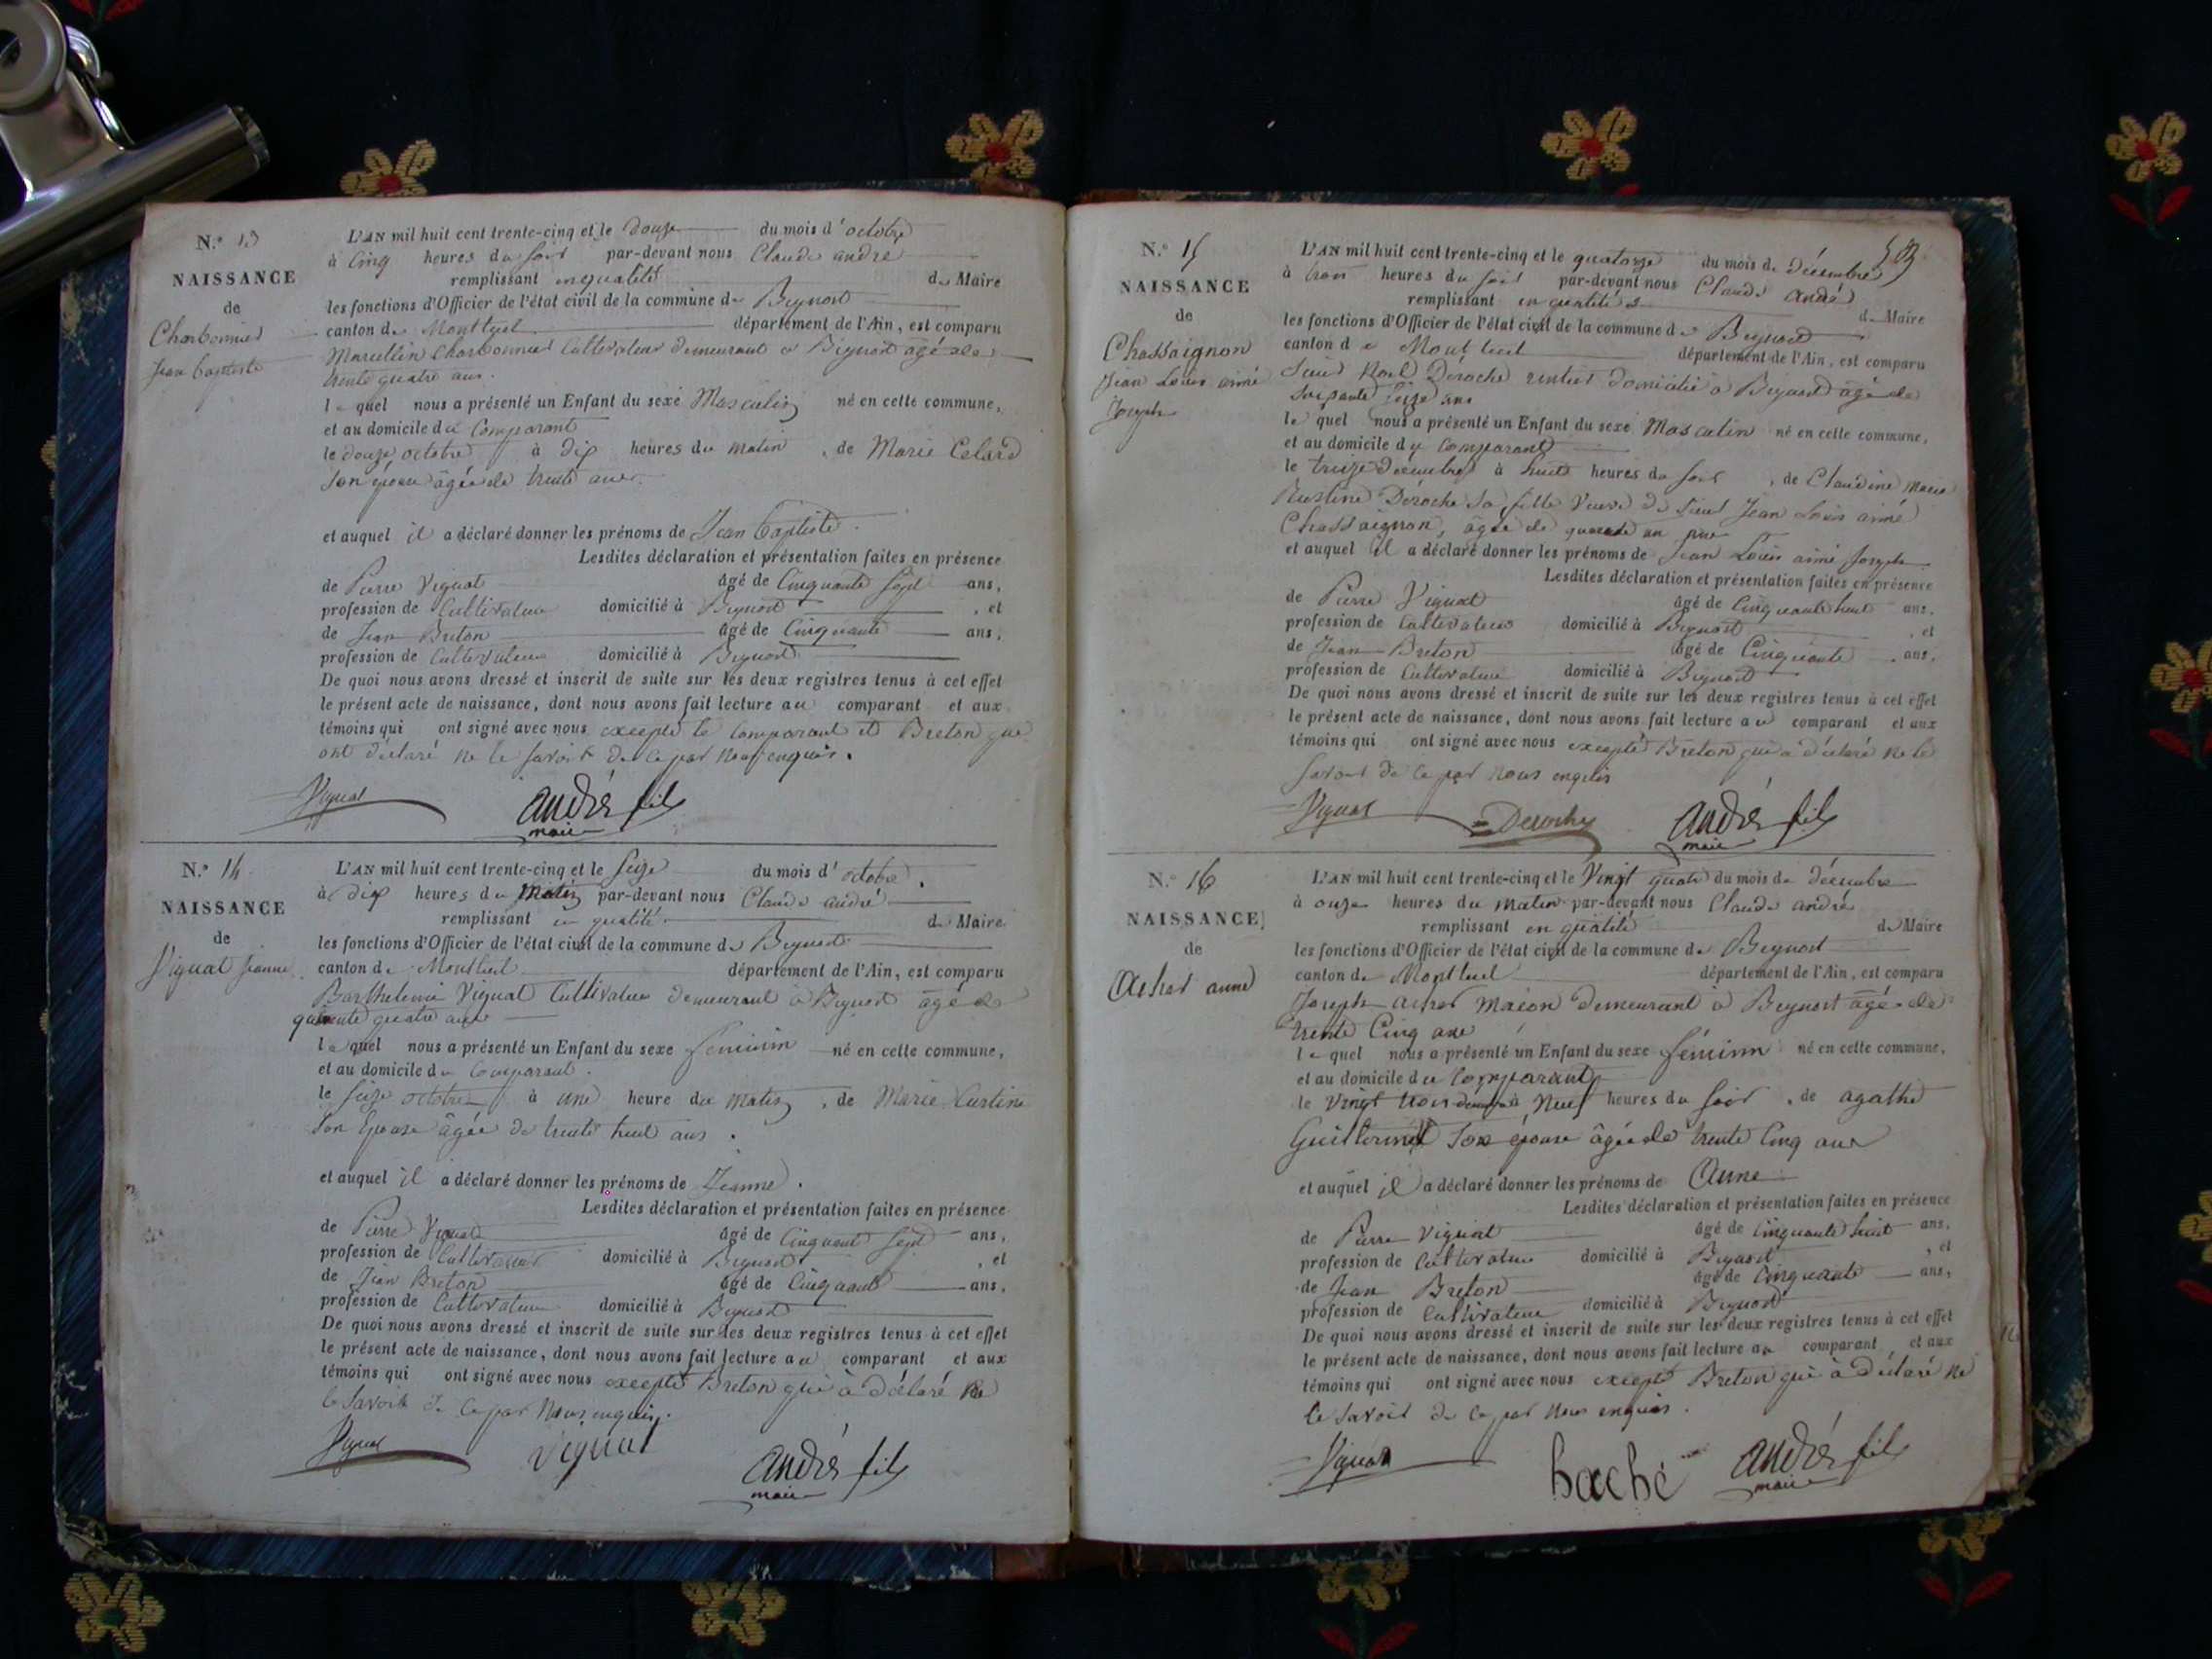 N.° 13
NAISSANCE
de
Charbonnier
Jean baptiste
L'AN mil huit cent trente-cinq et le douze du mois d'octobre
à Cinq heures du soir par-devant nous Claude andré
remplissant en qualité de Maire
les fonctions d'Officier de l'état civil de la commune de Beynost
canton de Montluel département de l'Ain, est comparu
Marcellin Charbonnier Cultivateur demeurant à Beynost âgé de
trente quatre ans.
le quel nous a présenté un Enfant du sexe Masculin né en cette commune,
et au domicile du Comparant
le douze octobre à dix heures du matin, de Marie Celard
son épouse âgée de trente ans.
et auquel il a déclaré donner les prénoms de Jean baptiste.
Lesdites déclaration et présentation faites en présence
de Pierre Vignat âgé de Cinquante sept ans,
profession de Cultivateur domicilié à Beynost, et
de Jean Breton âgé de Cinquante ans,
profession de Cultivateur domicilié à Beynost
De quoi nous avons dressé et inscrit de suite sur les deux registres tenus à cet effet
le présent acte de naissance, dont nous avons fait lecture au comparant et aux
témoins qui ont signé avec nous excepté le Comparant et Breton qui
ont déclaré ne le savoir de ce par nous enquis.
Vignat André fils
maire
N.° 14
NAISSANCE
de
Vignat Jeanne
L'AN mil huit cent trente-cinq et le seize du mois d'octobre.
à dix heures du Matin par-devant nous Claude andré
remplissant en qualité de Maire
les fonctions d'Officier de l'état civil de la commune de Beynost
canton de Montluel département de l'Ain, est comparu
Barthelemi Vignat Cultivateur demeurant à Beynost âgé de
quarante quatre ans
le quel nous a présenté un Enfant du sexe féminin né en cette commune,
et au domicile du Comparant.
le seize octobre à une heure du matin, de Marie Curtine
son Epouse âgée de trente huit ans.
et auquel il a déclaré donner les prénoms de Jeanne.
Lesdites déclaration et présentation faites en présence
de Pierre Vignat âgé de Cinquante sept ans,
profession de Cultivateur domicilié à Beynost, et
de Jean Breton âgé de Cinquante ans,
profession de Cultivateur domicilié à Beynost
De quoi nous avons dressé et inscrit de suite sur les deux registres tenus à cet effet
le présent acte de naissance, dont nous avons fait lecture au comparant et aux
témoins qui ont signé avec nous excepté Breton qui à déclaré ne
le savoir de ce par nous enquis.
Vignat Vignat André fils
maire
N.° 15
NAISSANCE
de
Chassaignon
Jean Louis aimé
Joseph
L'AN mil huit cent trente-cinq et le quatorze du mois de décembre
à trois heures du soir par-devant nous Claude André
remplissant en qualité de Maire
les fonctions d'Officier de l'état civil de la commune de Beynost
canton de Montluel département de l'Ain, est comparu
Sieur Noel Déroche rentier domicilié à Beynost âgé de
soixante seize ans
le quel nous a présenté un Enfant du sexe Masculin né en cette commune,
et au domicile du comparant
le treize décembre à huit heures du soir, de Claudine Marie
Déroche sa fille Veuve de sieur Jean Louis aimé
Chassaignon, âgée de quarante un ans
et auquel il a déclaré donner les prénoms de Jean Louis aimé Joseph
Lesdites déclaration et présentation faites en présence
de Pierre Vignat âgé de Cinquante huit ans,
profession de Cultivateur domicilié à Beynost, et
de Jean Breton âgé de Cinquante ans,
profession de Cultivateur domicilié à Beynost
De quoi nous avons dressé et inscrit de suite sur les deux registres tenus à cet effet
le présent acte de naissance, dont nous avons fait lecture au comparant et aux
témoins qui ont signé avec nous excepté Breton qui à déclaré ne le
savoir de ce par nous enquis
Vignat Deroche André fils
maire
N.° 16
NAISSANCE
de
Acher anne
L'AN mil huit cent trente-cinq et le Vingt quatre du mois de décembre
à onze heures du matin par-devant nous Claude andré
remplissant en qualité de Maire
les fonctions d'Officier de l'état civil de la commune de Beynost
canton de Montluel département de l'Ain, est comparu
Joseph acher Macon demeurant à Beynost âgé de
trente Cinq ans
le quel nous a présenté un Enfant du sexe féminin né en cette commune,
et au domicile du Comparant
le vingt trois décembre à Neuf heures du soir, de agathe
Guillermet son épouse âgée de trente Cinq ans
et auquel il a déclaré donner les prénoms de Anne
Lesdites déclaration et présentation faites en présence
de Pierre Vignat âgé de Cinquante huit ans,
profession de Cultivateur domicilié à Beynost, et
de Jean Breton âgé de Cinquante ans,
profession de Cultivateur domicilié à Beynost
De quoi nous avons dressé et inscrit de suite sur les deux registres tenus à cet effet
le présent acte de naissance, dont nous avons fait lecture au comparant et aux
témoins qui ont signé avec nous excepté Breton qui à déclaré ne
le savoir de ce par nous enquis.
Vignat haché André fils
maire